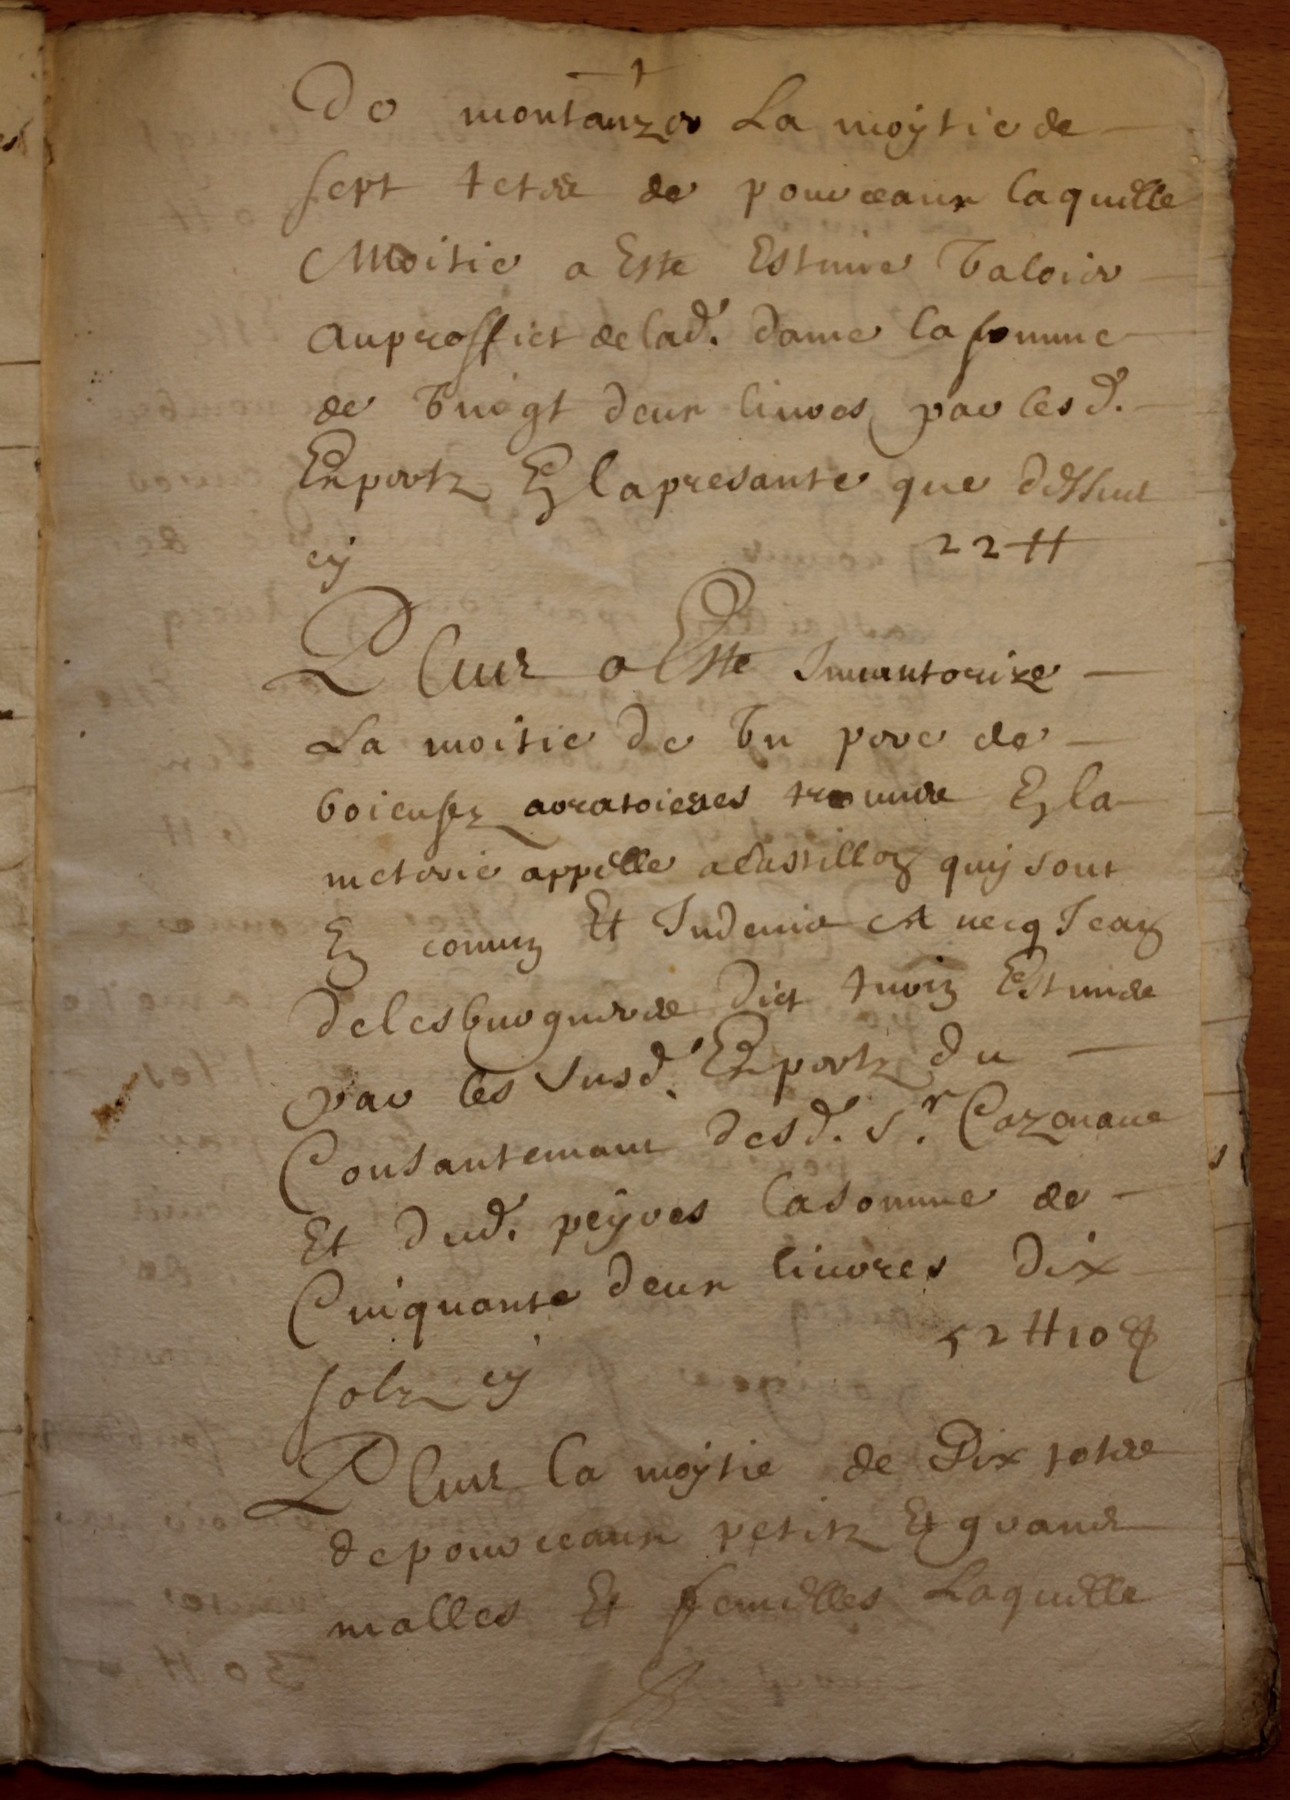 De montauzer La moytie de
sept testes de pourceaux laquelle
Moitie a Este Estimee Valoir
au proffict de lad. dame la somme
de Vingt deux livres par lesd.
Expertz En la presante que dessus
cy 22 tt
Plus a Este Inuantorize
La moitie de Vn pere de
boieufz aratoieres trouuee En la
meterie appelle a Castillon quy sont
En comun Et Indeuis Auecq Jean
par les susd. Expertz du
Consantemant desd. Sr. Cazenaue
Et dud. peyres la somme de
Cinquante deux liures dix
solz cy 52 tt 10 s
Plus la moytie de Dix testes
de pourceaux petitz Et grands
malles Et femelles Laquelle